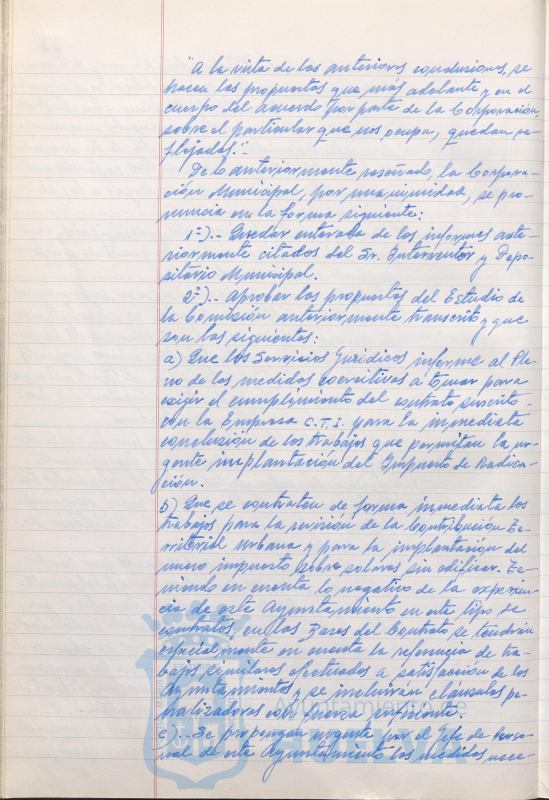 "A la vista de las anteriores conclusiones, se
hacen las propuestas que más adelante y en el
cuerpo del acuerdo por parte de la Corporación,
sobre el particular que nos ocupa, quedan re-
flejadas."-
De lo anteriormente reseñado, la Corpora-
ción Municipal, por unanimidad, se pro-
nuncia en la forma siguiente:
1º).- Quedar enterada de los informes ante-
riormente citados del Sr. Interventor y Depo-
sitario Municipal.
2º).- Aprobar las propuestas del Estudio de
la Comisión anteriormente transcrito y que
son las siguientes:
a) Que los Servicios Jurídicos informe al Ple-
no de las medidas coercitivas a tomar para
exigir el cumplimiento del contrato suscrito
con la Empresa C.T.I. para la inmediata
conclusión de los trabajos que permitan la ur-
gente implantación del Impuesto de Radica-
ción.
b) Que se contraten de forma inmediata los
trabajos para la revisión de la Contribución Te-
rritorial Urbana y para la implantación del
nuevo impuesto sobre solares sin edificar. Te-
niendo en cuenta lo negativo de la experien-
cia de este Ayuntamiento en este tipo de
contratos, en las Bases del Contrato se tendrán
especialmente en cuenta la referencia de tra-
bajos similares efectuados a satisfacción de los
Ayuntamientos y se incluirán cláusulas pe-
nalizadoras con fuerza suficiente.
Ayuntamiento de
c).- Se propongan urgente por el Jefe de Perso-
nal de este Ayuntamiento las medidas nece-